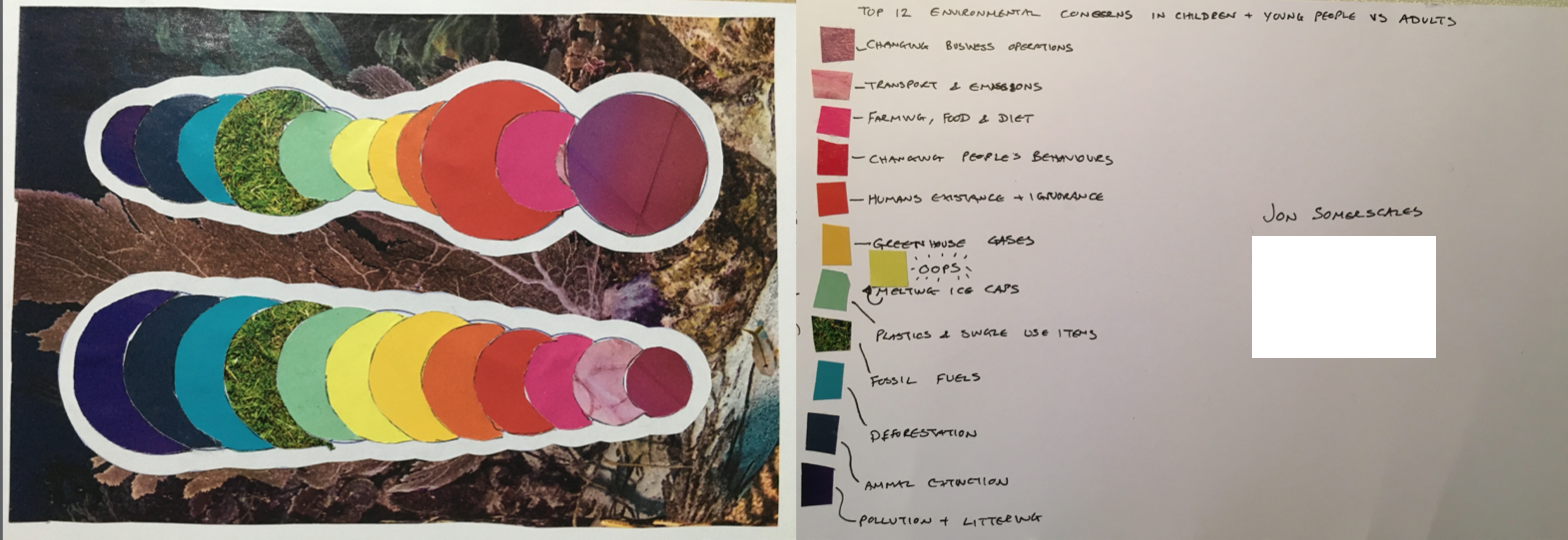 TOP 12 ENVIRONMENTAL CONCERNS IN CHILDREN + YOUNG PEOPLE VS ADULTS
CHANGING BUSINESS OPERATIONS
TRANSPORT & EMISSIONS
FARMING, FOOD & DIET
CHANGING PEOPLE'S BEHAVIOURS
HUMANS EXISTANCE + IGNORANCE
GREENHOUSE GASES
OOPS
MELTING ICE CAPS
PLASTICS & SINGLE USE ITEMS
FOSSIL FUELS
DEFORESTATION
ANIMAL EXTINCTION
POLLUTION + LITTERING
JON SOMERSCALES